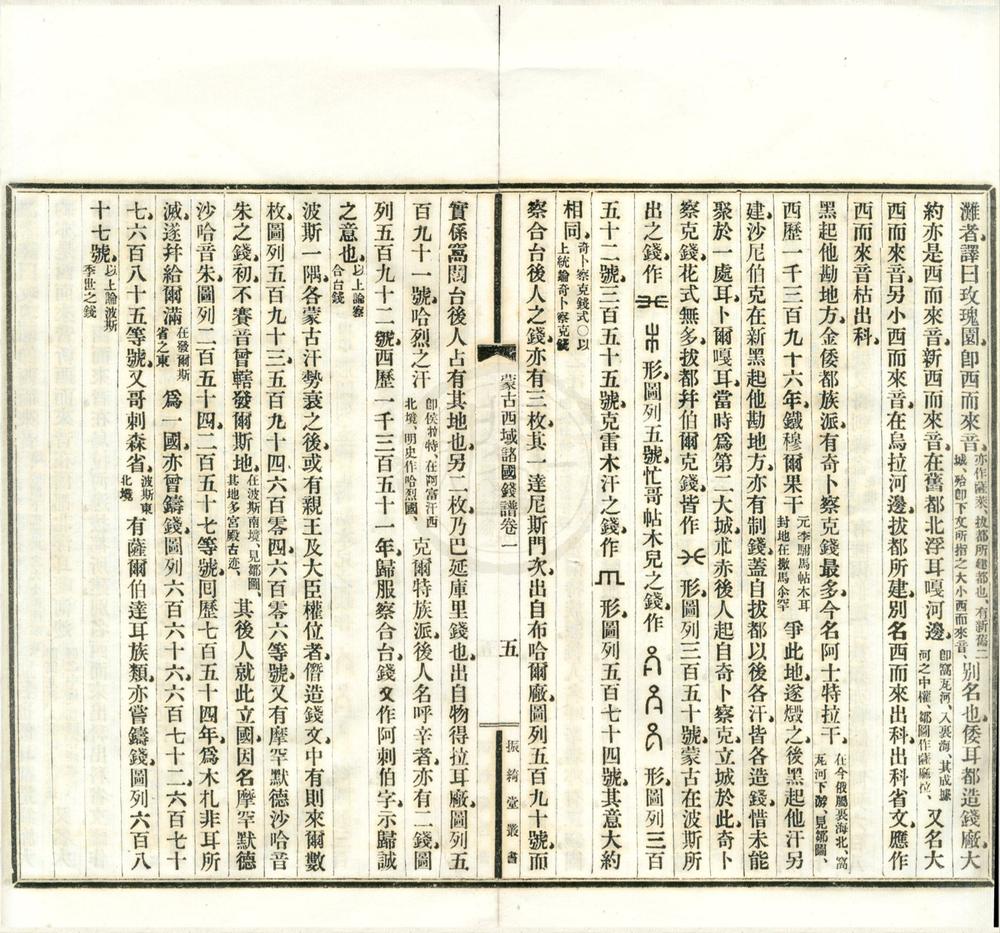 灘者譯曰玫瑰園卽西而來音亦作薩萊、拔都所建都也、有新舊二城、殆卽下文所指之大小西而來音、別名也倭耳都造錢廠大
約亦是西而來音新西而來音在舊都北浮耳嘎河邊卽窩瓦河、入裏海、其成據河之中權、鄒圖作薩麻位、又名大
西而來音另小西而來音在烏拉河邊拔都所建別名西而來出科出科省文應作
西而來音枯出科
黑起他勘地方金倭都族派有奇卜察克錢最多今名阿士特拉干在今俄屬裏海北、窩瓦河下游、見鄒圖、
西歷一千三百九十六年鐵穆爾果干元季駙馬帖木耳封地在撒馬兒罕爭此地遂燬之後黑起他汗另
建沙尼伯克在新黑起他勘地方亦有制錢蓋自拔都以後各汗皆各造錢惜未能
聚於一處耳卜爾嘎耳當時爲第二大城朮赤後人起自奇卜察克立城於此奇卜
察克錢花式無多拔都幷伯爾克錢皆作形圖列三百五十號蒙古在波斯所
出之錢作形圖列五號忙哥帖木兒之錢作形圖列三百
五十二號三百五十五號克雷木汗之錢作形圖列五百七十四號其意大約
相同奇卜察克錢式〇以上統論奇卜察克錢
察合台後人之錢亦有三枚其一達尼斯門次出自布哈爾廠圖列五百九十號而
蒙古西域諸國錢譜卷一
五
振綺堂叢書
實係窩闊台後人占有其地也另二枚乃巴延庫里錢也出自物得拉耳廠圖列五
百九十一號哈烈之汗卽侯增特、在阿富汗西北境、明史作哈烈國、克爾特族派後人名呼辛者亦有二錢圖
列五百九十二號西歷一千三百五十一年歸服察合台錢文作阿剌伯字示歸誠
之意也以上論察合台錢
波斯一隅各蒙古汗勢衰之後或有親王及大臣權位者僭造錢文中有則來爾數
枚圖列五百九十三五百九十四六百零四六百零六等號又有摩罕默德沙哈音
朱之錢初不賽音曾轄發爾斯地在波斯南境、見鄒圖、其地多宮殿古迹、其後人就此立國因名摩罕默德
沙哈音朱圖列二百五十四二百五十七等號囘歷七百五十四年爲木札非耳所
滅遂幷給爾滿在發爾斯省之東爲一國亦曾鑄錢圖列六百六十六六百七十二六百七十
七六百八十五等號又哥剌森省波斯東北境有薩爾伯達耳族類亦嘗鑄錢圖列六百八
十七號以上論波斯季世之錢